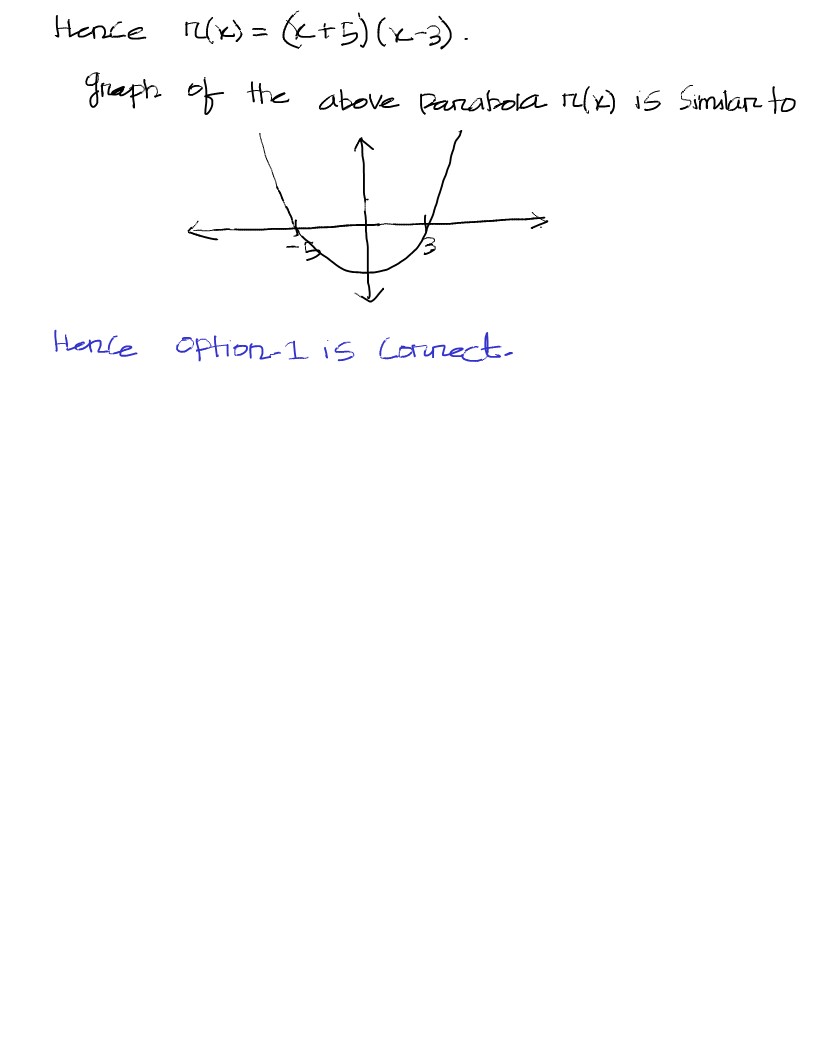 Hence r(x) = (x+5)(x-3).
graph of the above parabola r(x) is similar to
-5 3
Hence option-1 is correct.